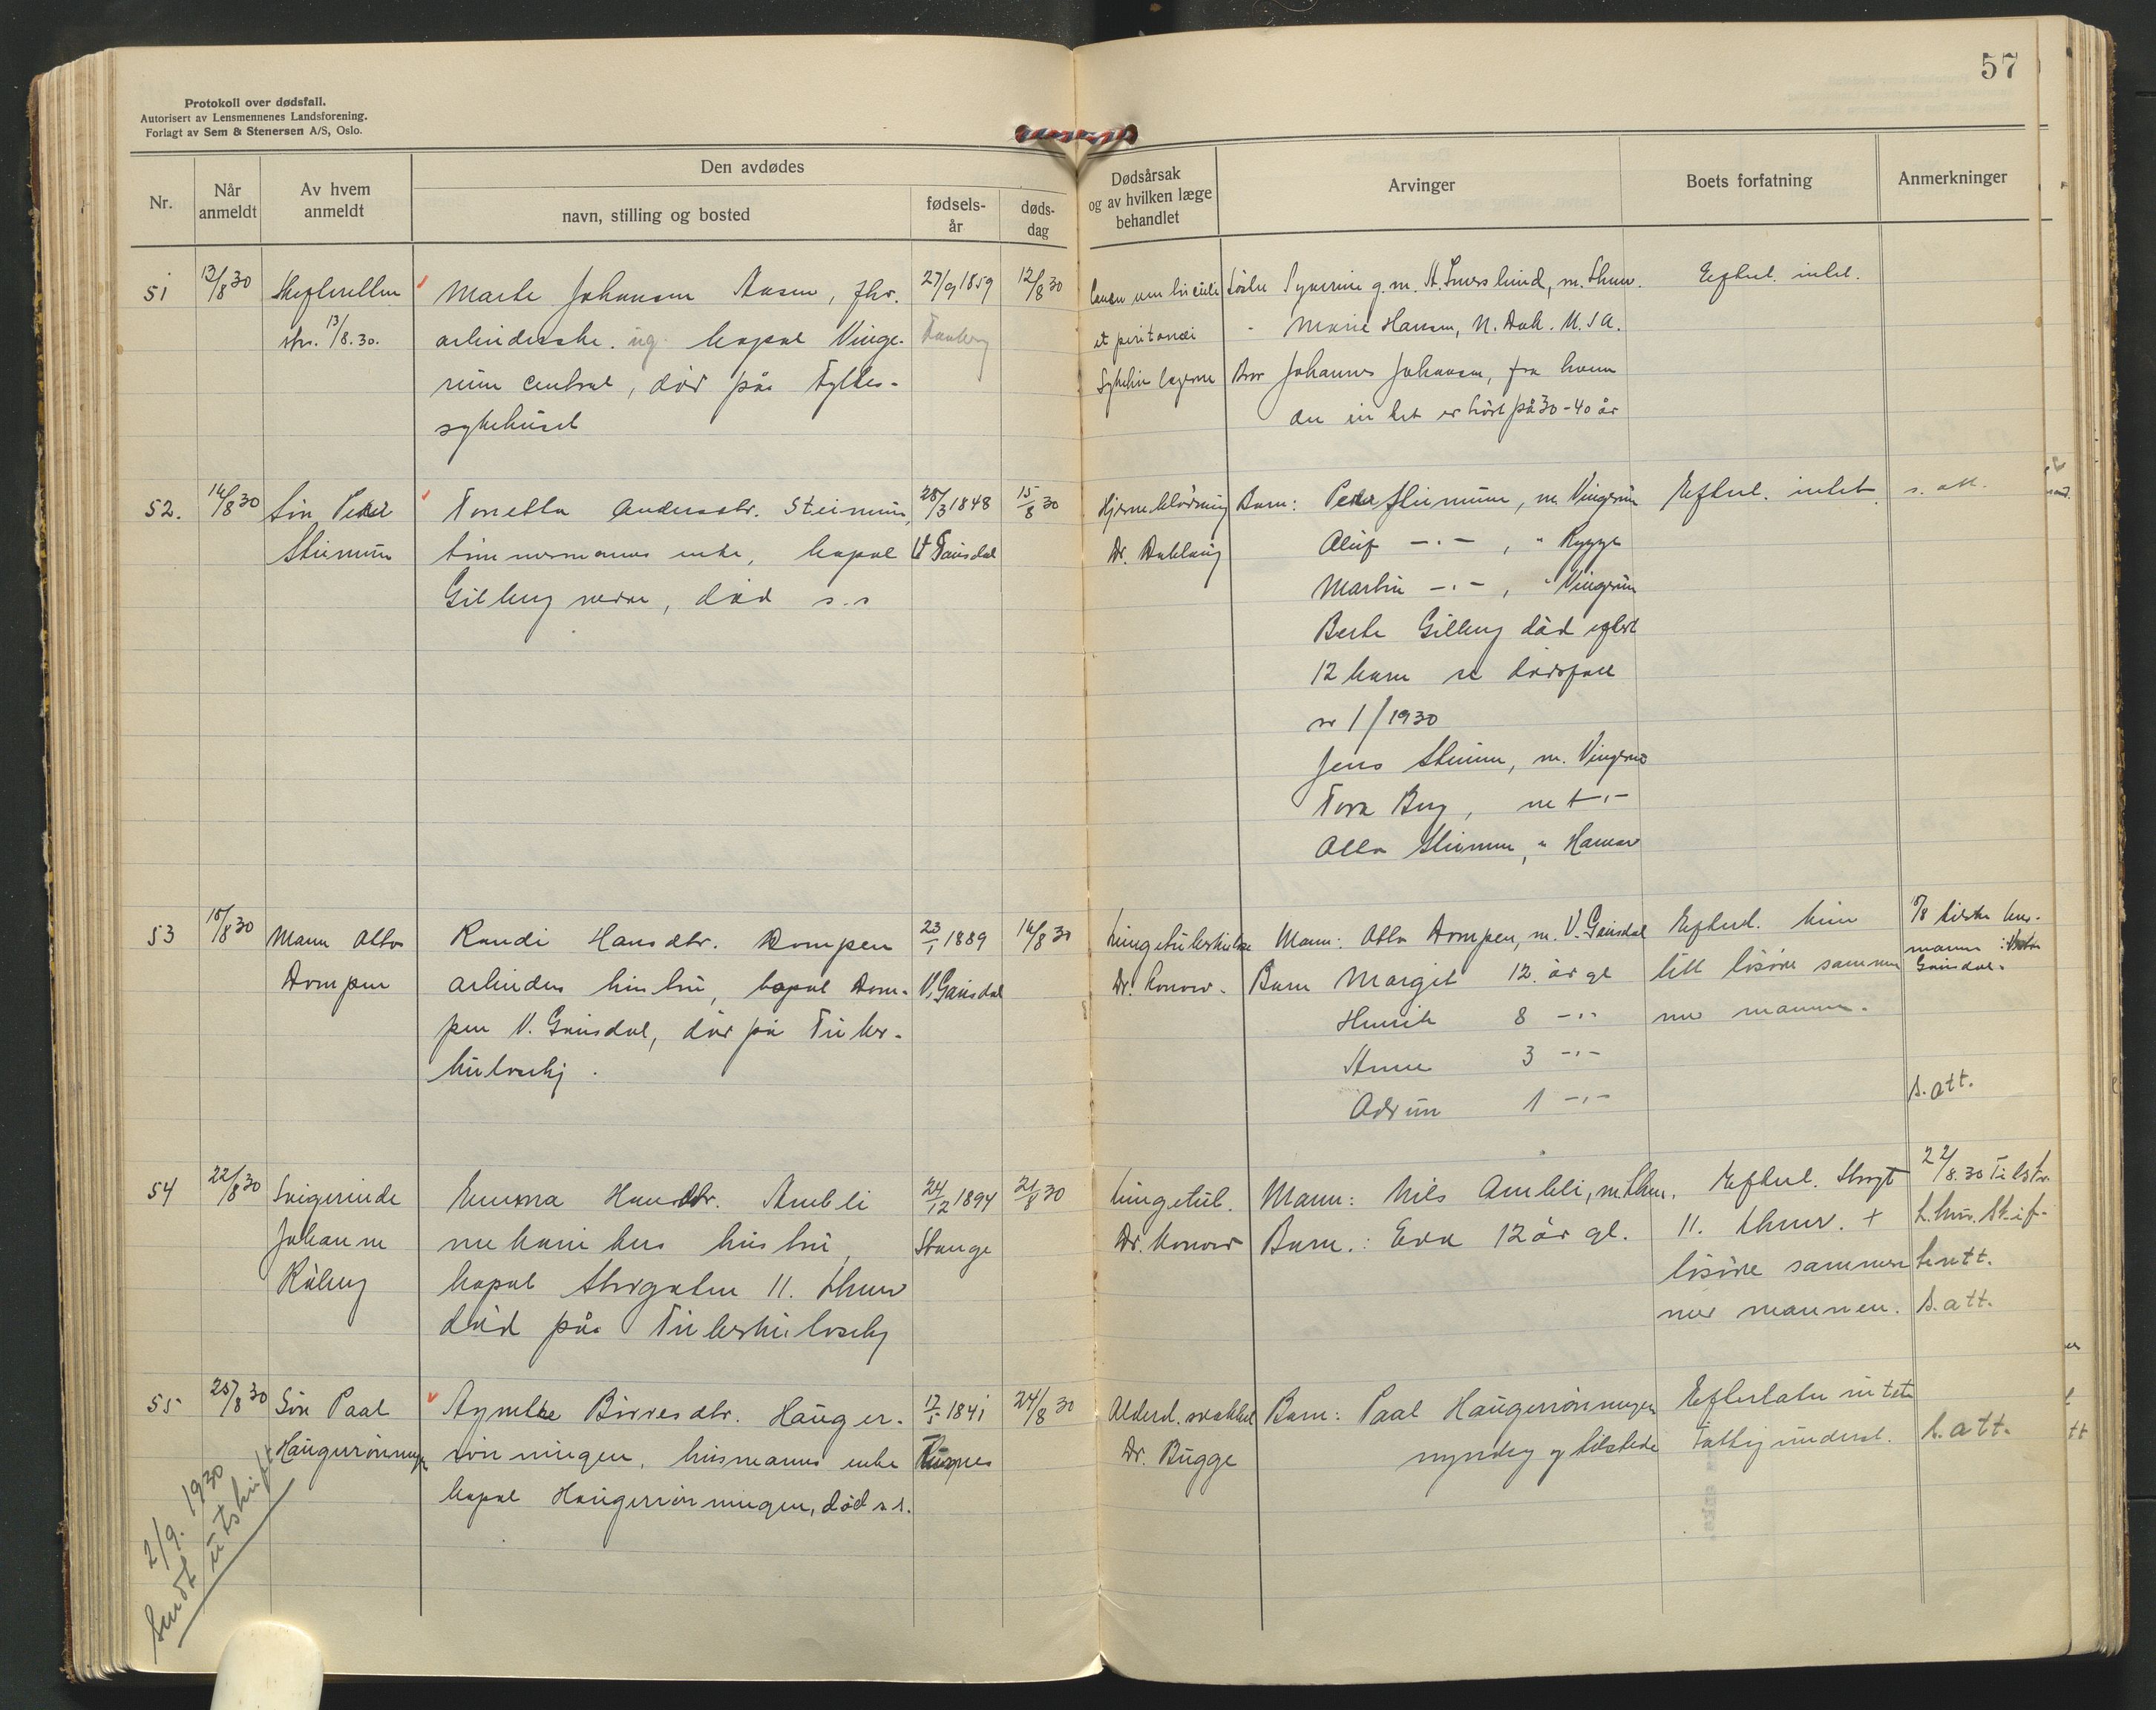 57
Protokoll over dødsfall.
Autorisert av Lensmennenes Landsforening.
Forlagt av Sem & Stenersen A/S, Oslo.
Nr.
Når anmeldt
Av hvem anmeldt
Den avdødes
navn, stilling og bosted
fødsels-år
døds-dag
Dødsårsak og av hvilken læge behandlet
Arvinger
Boets forfatning
Anmerkninger
51
13/8 30
13/8.30.
Marte Johansen Aasen, fhv.
arbeiderske. ug. bopæl Vinge-
rum central, død på Fylkes-
sykehuset
27/9 1859
Faaberg
12/8 30
et peritonei
Marie Hansen, N. Dak. U.S.A.
Bror Johannes Johansen, fra hvem
der intet er hørt på 30-40 år
Efterl. intet.
52.
16/8 30
Søn Peder
Steinmum
Tonetta Andersdtr. Steinmum,
timmermanns enke, bopæl
Gilberg nedre, død s.s
28/3 1848
V Gausdal
15/8 30
Hjerneblødning
Barn: Peder Steinmum, m. Vingrum
Oluf -.- , " Rygge
Martin -.- , " Vingrum
Berte Gilberg død efterl
12 barn se dødsfall
nr 1/1930
Jens
Tora Berg,
Otto
" Hamar
Efterl. intet
s. att.
53
18/8 30
Mann Otto
Dompen
Randi Hansdtr. Dompen
arbeiders hustru, bopæl Dom-
pen V. Gausdal, død på Tuber-
kuloseh.
23/1 1889
V. Gausdal
16/8 30
Lungetuberkulose
Dr. Konow.
Mann: Otto Dompen, m. V. Gausdal
Barn Margit 12 år gl
Henrik 8 -.-
Anne 3 -.-
Odrun 1 -.-
Efterl. kun
litt løsøre sammen
med mannen.
Gausdal.
s. att.
54
22/8 30
Svigerinde
Johanne
Emma Hansdtr. Ambli
mekanikers hustru,
bopæl Storgaten 11. Lhmr
død på Tuberkuloseh
24/12 1894
Stange
21/8 30
Lungetub.
Dr. Konow
Mann: Nils Ambli, m. Lhmr.
Barn.: Eva 12 år gl.
Efterl. Storgt
11. Lhmr. +
løsøre sammen
med mannen.
22/8.30
s. att.
55
25/8 30
Søn Paal
Haugerrønningen
Agnethe Børresdtr. Hauger-
rønningen, husmanns enke
bopæl Haugerrønningen, død s.s.
12/5 1841
24/8 30
Alderd. svakhet
Dr. Bugge
Barn: Paal Haugerrønningen
myndig og tilstede
Efterlater intet
Fattigunderst.
s. att.
2/9. 1930
Sendt utskrift